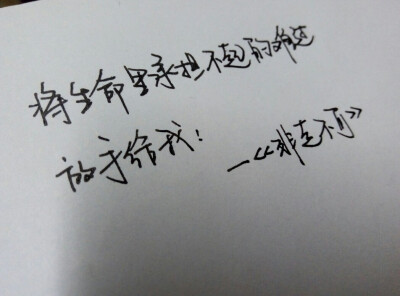 将生命里承担不起的命运
放手给我：
—《非走不可》